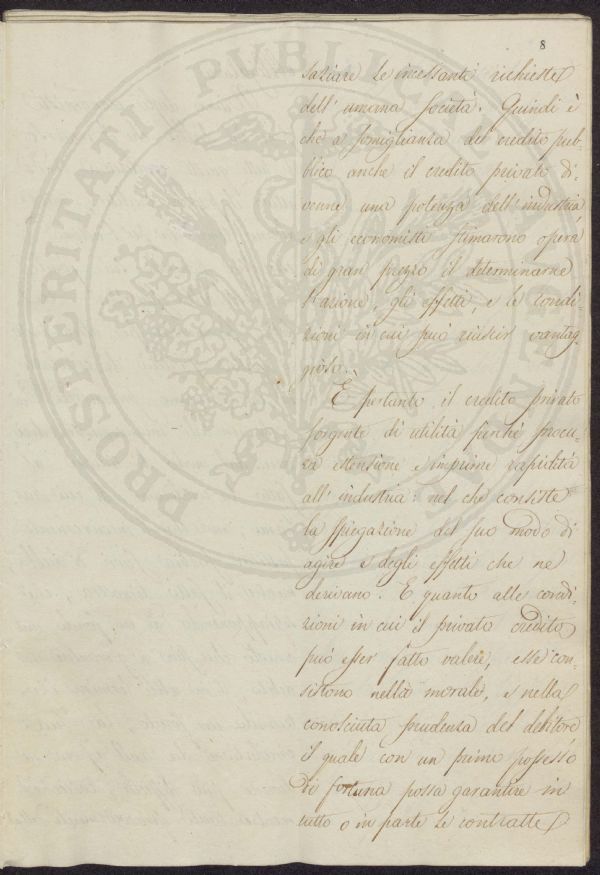 8
saziare le incessanti richieste
dell'umana Società. Quindi è
che a somiglianza del credito pub-
blico anche il credito privato di-
venne una potenza dell'industria,
e gli economisti stimarono opera
di gran prezzo il determinarne
l'azione, gli effetti, e le condi-
zioni in cui può riuscir vantag-
gioso.
È pertanto il credito privato
sorgente di utilità perchè procu-
ra estensione e imprime rapidità
all'industria: nel che consiste
la spiegazione del suo modo di
agire e degli effetti che ne
derivano. E quanto alle condi-
zioni in cui il privato credito
può esser fatto valere, esse con-
sistono nella morale, e nella
conosciuta prudenza del debitore
il quale con un primo possesso
di fortuna possa garantire in
tutto o in parte le contratte
PROSPERITATI PVBLICAE AVGENDAE